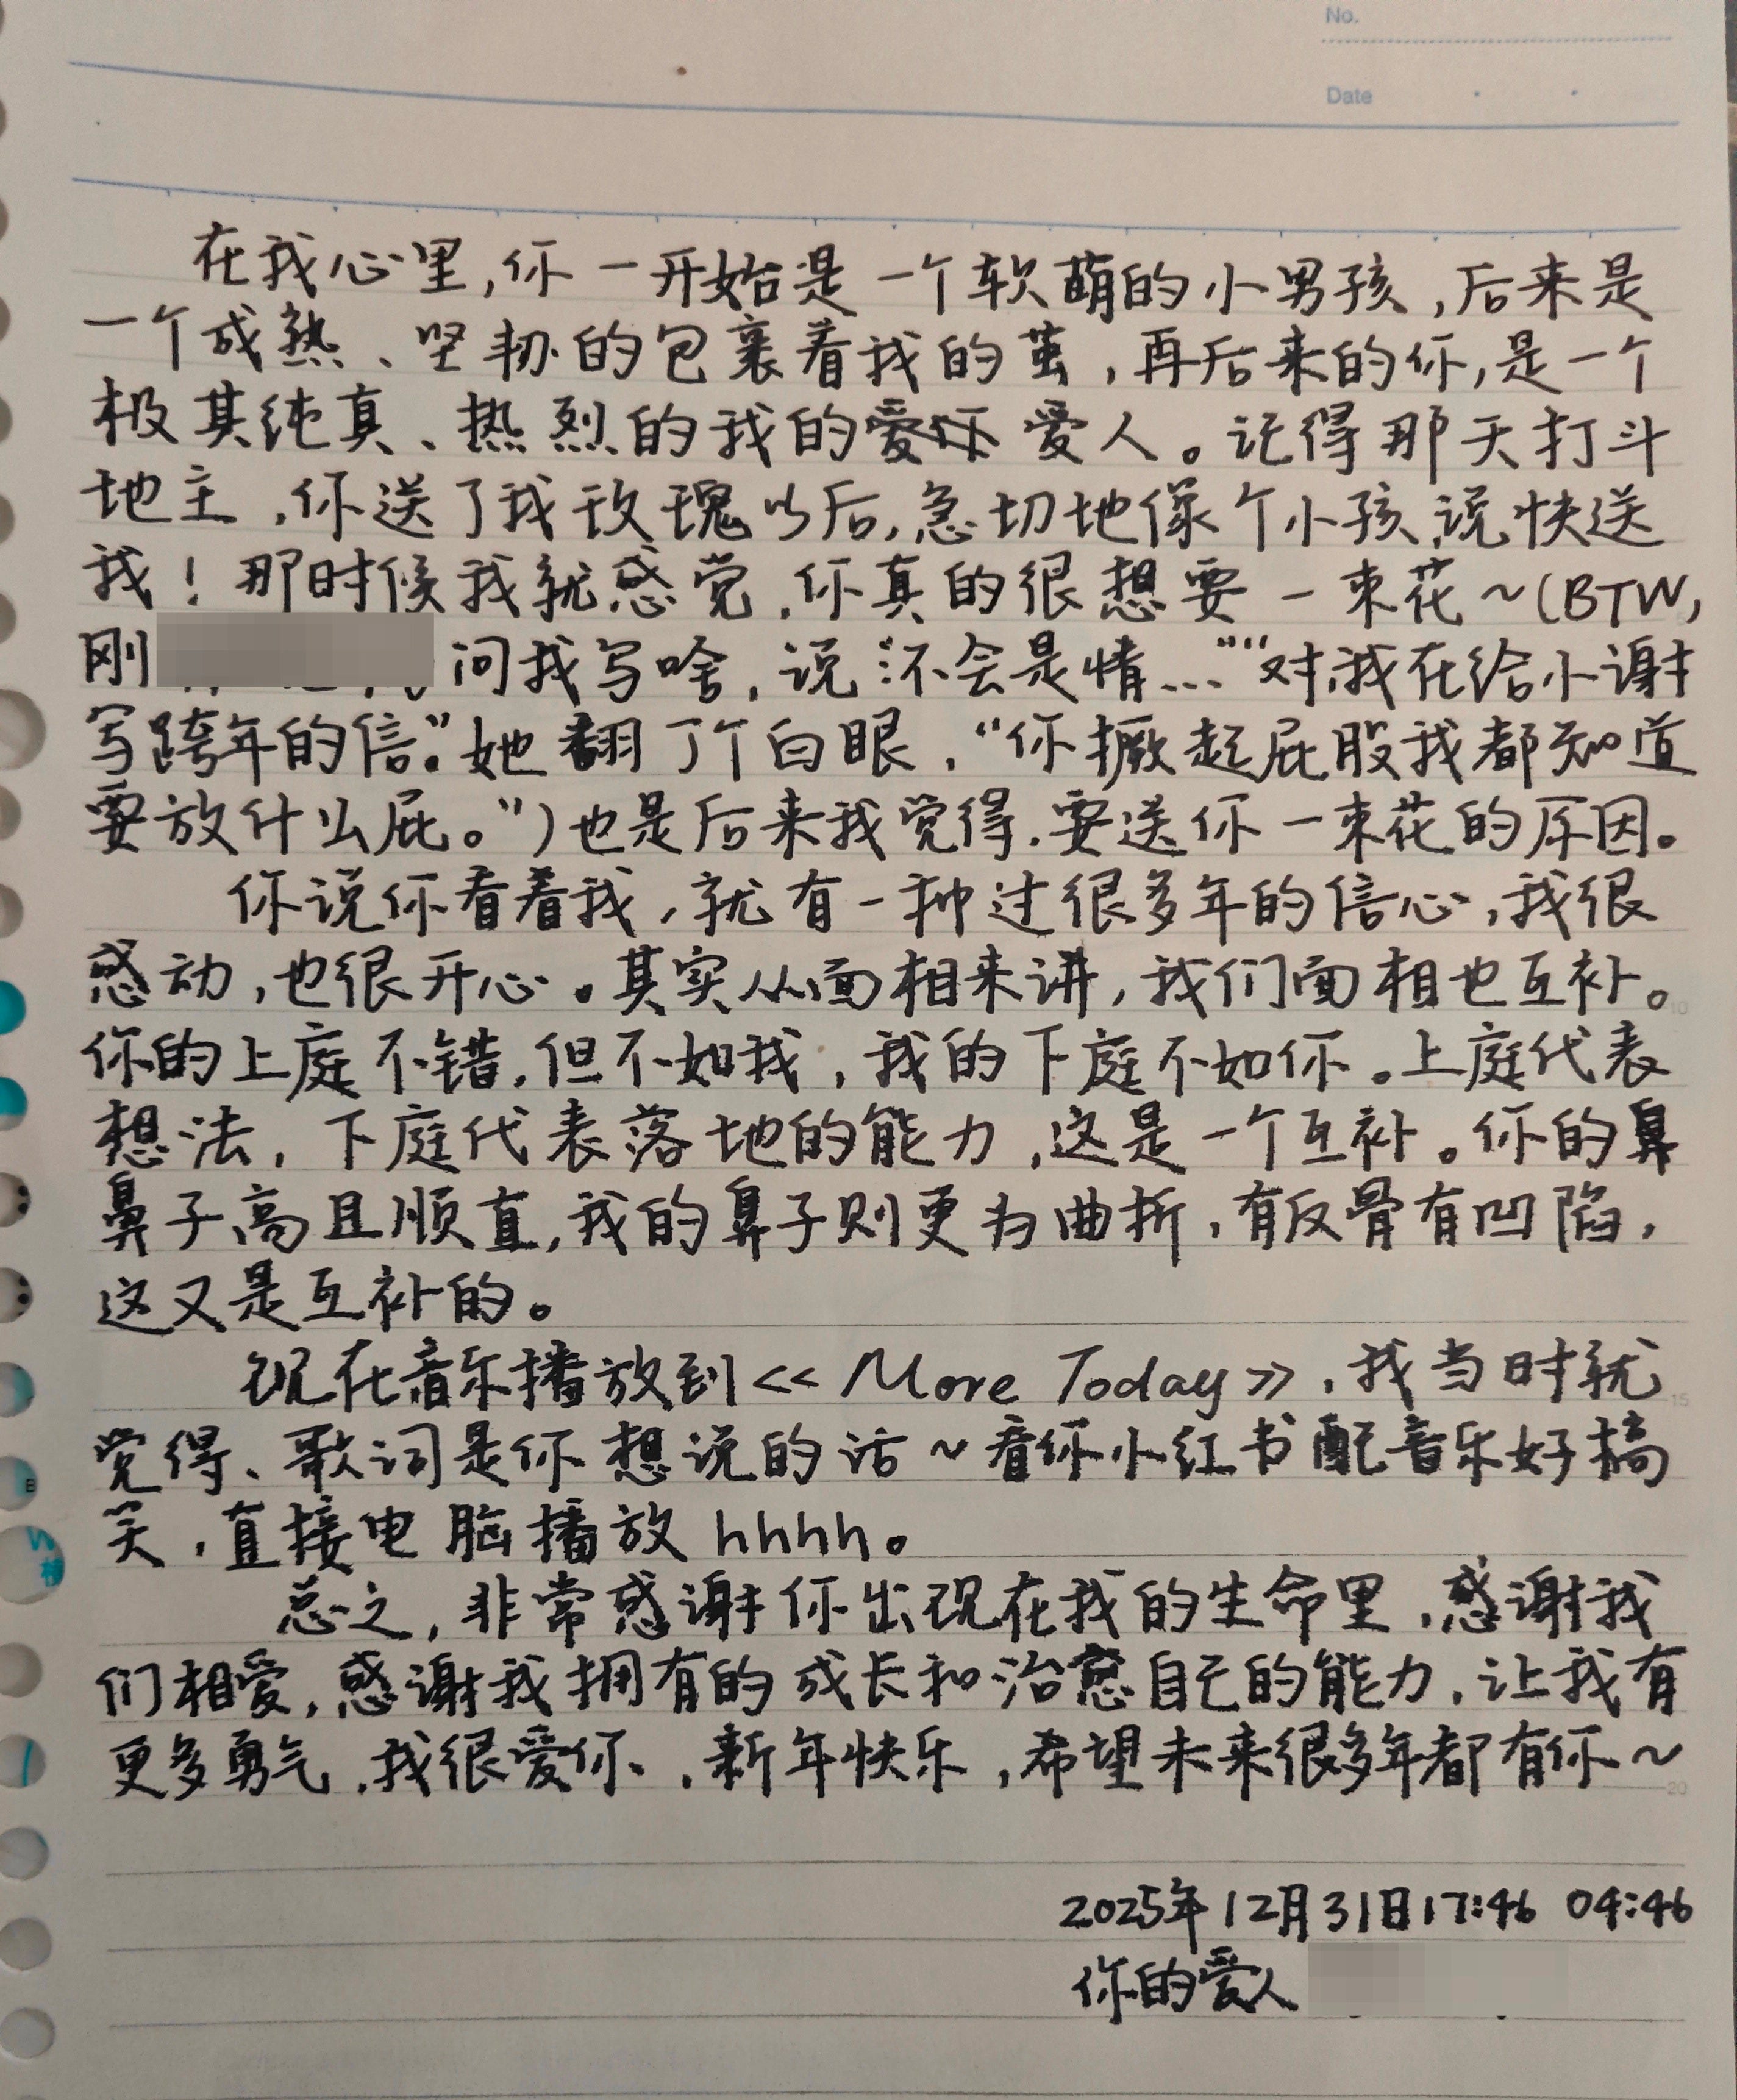 No.
Date
在我心里,你一开始是一个软萌的小男孩,后来是
一个成熟、坚韧的包裹着我的茧,再后来的你,是一个
极其纯真、热烈的我的爱人。记得那天打斗
地主,你送了我玫瑰以后,急切地像个小孩,说快送
我!那时候我就感觉,你真的很想要一束花~(BTW,
刚 问我写啥,说“不会是情...”“对,我在给小谢
写跨年的信。”她翻了个白眼,“你撅起屁股我都知道
要放什么屁。”)也是后来我觉得,要送你一束花的原因。
你说你看着我,就有一种过很多年的信心,我很
感动,也很开心。其实从面相来讲,我们面相也互补。
你的上庭不错,但不如我,我的下庭不如你。上庭代表
想法,下庭代表落地的能力,这是一个互补。你的鼻
鼻子高且顺直,我的鼻子则更为曲折,有反骨有凹陷,
这又是互补的。
现在音乐播放到<< More Today >>,我当时就
觉得、歌词是你想说的话~看你小红书配音乐好搞
笑,直接电脑播放hhhh。
总之,非常感谢你出现在我的生命里,感谢我
们相爱,感谢我拥有的成长和治愈自己的能力,让我有
更多勇气,我很爱你、,新年快乐,希望未来很多年都有你~
2025年12月31日17:46 04:46
你的爱人
10
15
20